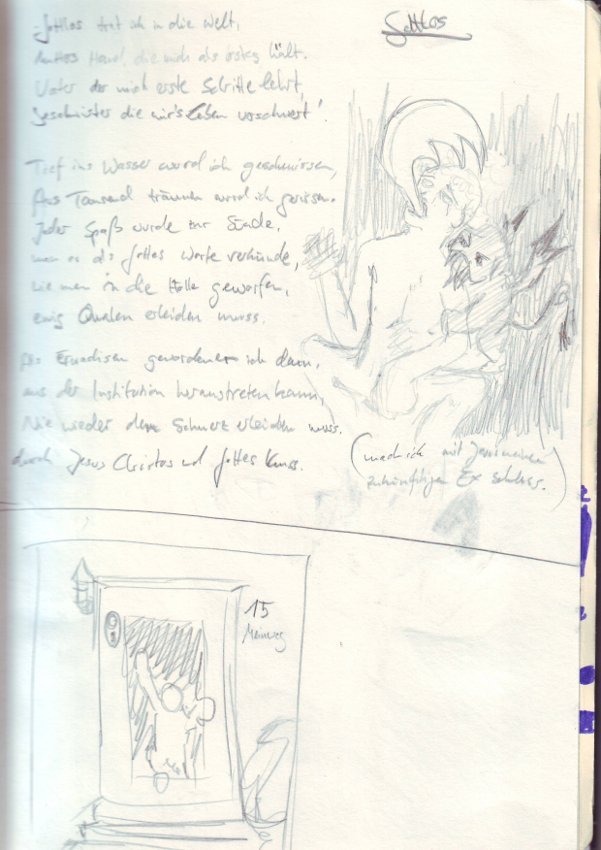 Gottlos
Gottlos trat ich in die Welt,
Hand, die mich als erstes hält.
Vater der mich erste Schritte lehrt,
Geschwister die mir's Leben
Tief ins Wasser wurd ich geschmissen,
Aus Tausend träumen wurd ich gerissen.
Jeder Spaß wurde zur Sünde,
wenn er als Gottes Worte verkünde,
wie man in die Hölle geworfen,
ewig Qualen erleiden muss.
Als Erwachsen gewordener ich dann,
aus der Institution heraustreten kann,
Nie wieder den Schmerz erleiden muss.
durch Jesus Christus und Gottes Kuss.
(mach ich mit
zukünftigen Ex
15
Meinweg